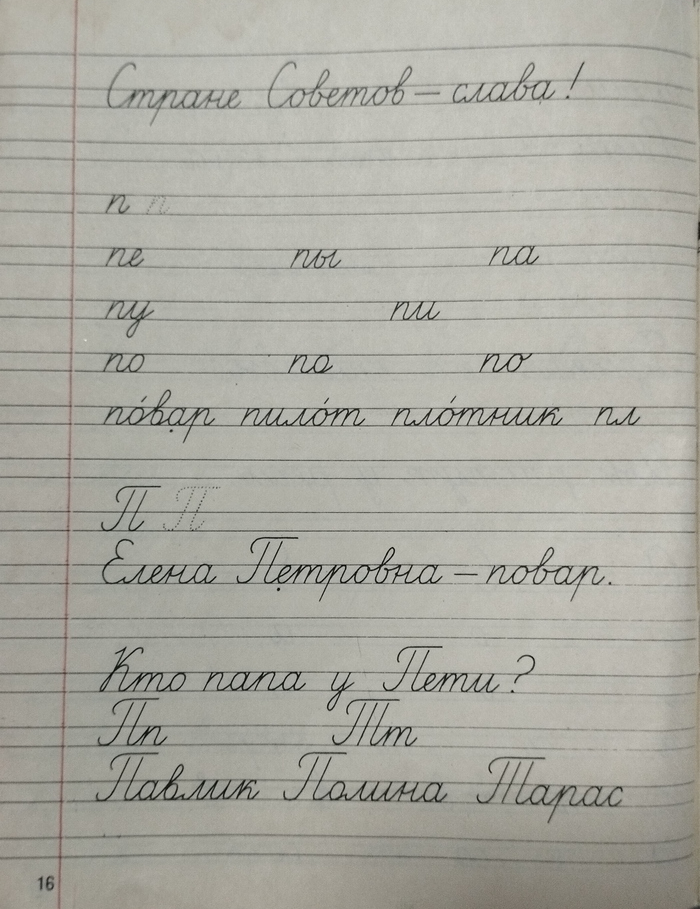 Стране Советов — слава!
п п
пе пы па
пу пи
по по по
по́вар пило́т пло́тник пл
П П
Елена Петровна — повар.
Кто папа у Пети?
Пп Тт
Павлик Полина Тарас
16